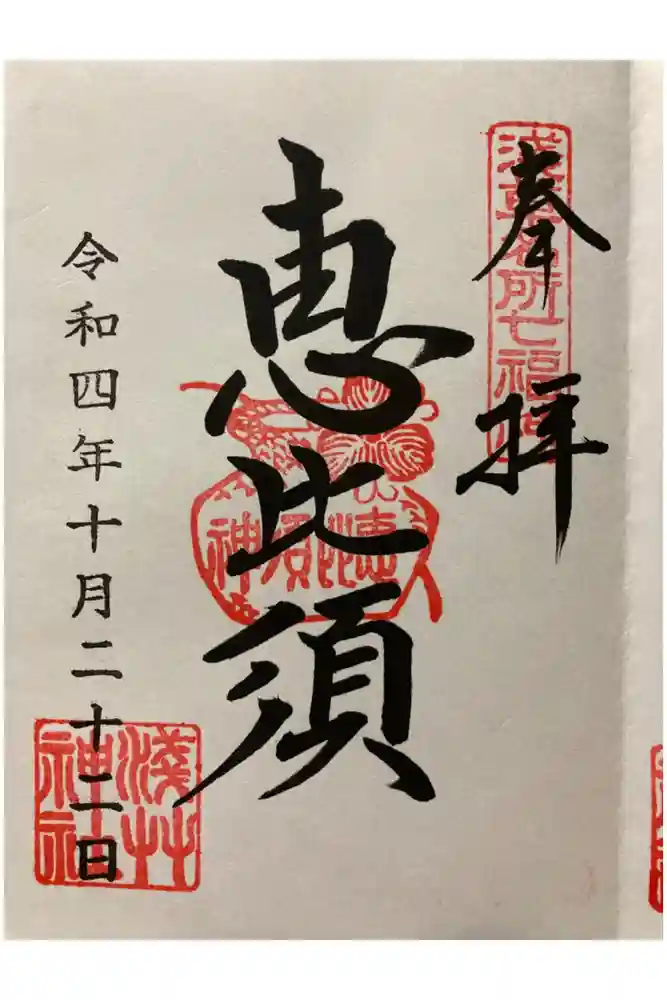 奉拝
浅草名所七福神
恵比須
恵比須神
令和四年十月二十二日
浅草神社